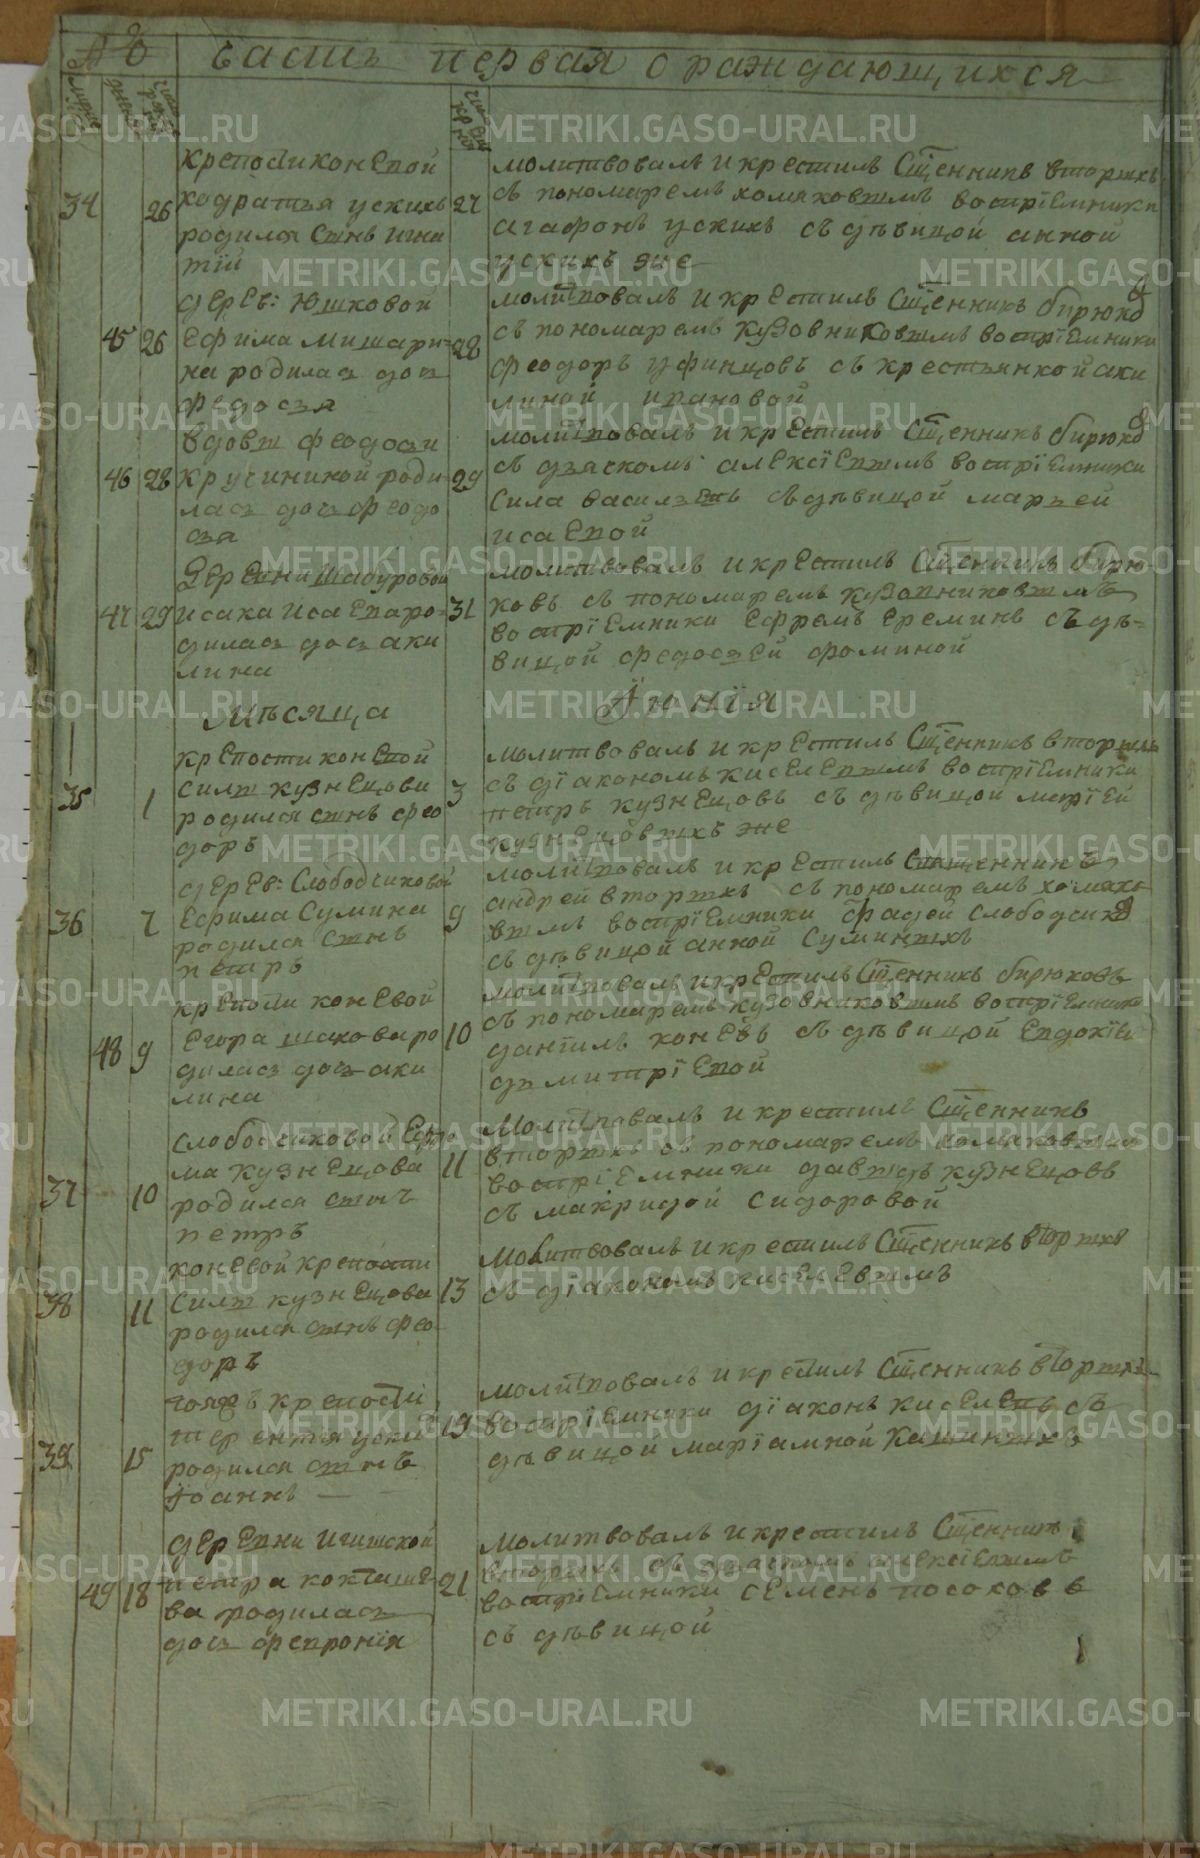 часть первая о раждающихся
крепости коневой
34 26 кодратья ускихъ
родился сынъ игна
тїй
27 молитвовалъ и крестилъ Сщенникъ вторыхъ
съ пономаремъ хомяковымъ воспрїемники
агафонъ ускихъ съ дѣвицой анной
ускихъ же
дерев: Юшковой
45 26 Ефима мишари
на родилась дочь
федосья
28 молитвовалъ и крестилъ Сщенникъ бирюковъ
съ пономаремъ кузовниковымъ воспрїемники
феодоръ уфинцовъ съ крестьянкой аки
линой ивановой
вдовы феодосьи
46 28 кручининой роди
лась дочь феодо
сья
29 молитвовалъ и крестилъ Сщенникъ бирюковъ
съ дьячкомъ алексїевымъ воспрїемники
Сила васильевъ съ дѣвицой марьей
исаевой
Деревни Шабуровой
47 29 исака исаева ро
дилась дочь аки
лина
31 молитвовалъ и крестилъ Сщенникъ бирю
ковъ съ пономаремъ кузовниковымъ
воспрїемники ефремъ ереминъ съ дѣ=
вицой федосьей фоминой
Мѣсяца Їюнїя
крепости коневой
35 1 силы кузнецова
родился сынъ фео
доръ
3 молитвовалъ и крестилъ Сщенникъ вторыхъ
съ дїакономъ киселевымъ воспрїемники
петръ кузнецовъ съ дѣвицой марїей
кузнецовыхъ же
дерев: Слободчиковой
36 7 Ефима Сумина
родился сынъ
петръ
9 молитвовалъ и крестилъ Сщенникъ
андрей вторыхъ съ пономаремъ хомяко
вымъ воспрїемники фадей слободчиковъ
съ дѣвицой анной суминыхъ
крепости коневой
48 9 Егора шахова ро
дилась дочь аки
лина
10 молитвовалъ и крестилъ Сщенникъ бирюковъ
съ пономаремъ кузовниковымъ воспрїемники
данїилъ коневъ съ дѣвицой Евдокїей
димитрїевой
слободчиковой Ефи
37 10 ма кузнецова
родился сынъ
петръ
11 молитвовалъ и крестилъ Сщенникъ
вторыхъ съ пономаремъ хомяковымъ
воспрїемники давыдъ кузнецовъ
съ макридой сидоровой
коневой крепости
38 11 силы кузнецова
родился сынъ фео
доръ
13 молитвовалъ и крестилъ Сщенникъ вторыхъ
съ дїакономъ киселевымъ
тояжъ крепости
39 15 терентья ускихъ
родился сынъ
їоаннъ
19 молитвовалъ и крестилъ Сщенникъ вторыхъ
воспрїемники дїаконъ киселевъ съ
дѣвицой марїамной кашиныхъ
деревни игишской
49 18 петра кокташе
ва родилась
дочь февронїя
21 молитвовалъ и крестилъ Сщенникъ
вторыхъ съ дьячкомъ алексїевымъ
воспрїемники семенъ посоховъ
съ дѣвицой
METRIKI.GASO-URAL.RU